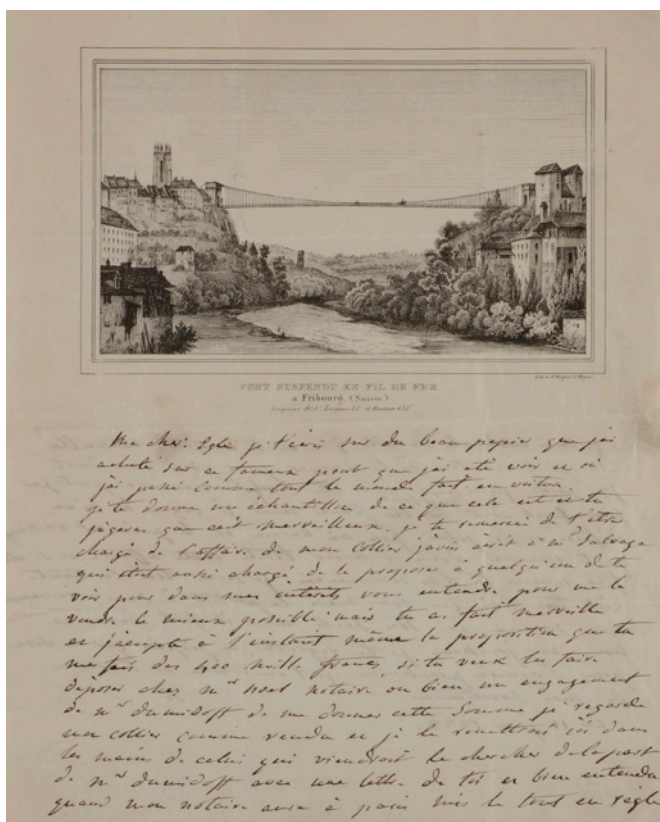 PONT SUSPENDU EN FIL DE FER
à Fribourg, (Suisse)
Ma chere Egle je t'écris sur du beau papier que j'ai
acheté sur ce fameux pont que j'ai été voir et où
j'ai passé comme tout le monde fait en voiture
je te donne un échantillon de ce que cela est et tu
jugeras que c'est merveilleux. je te remercie de t'etre
chargé de l'affaire de mon collier j'avois écrit à mr Salvage
qui étoit aussi chargé de le proposer à quelqu'un de te
voir pour dans mes intérets vous entendre pour me le
vendre le mieux possible mais tu as fait merveille
et j'accepte à l'instant même la proposition que tu
me fais des 400 mille francs, si tu veux les faire
déposer chez mr noel notaire ou bien un engagement
de mr dumidoff de me donner cette somme je regarde
mon collier comme vendu et je le remettrois ici dans
les mains de celui qui viendroit le chercher de la part
de mr dumidoff avec une lettre de toi et bien entendu
quand mon notaire aura à paris mis le tout en règle